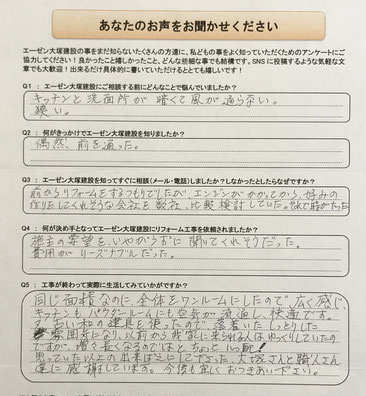 あなたのお声をお聞かせください
エーゼン大塚建設の事をまだ知らないたくさんの方達に、私どもの事をよく知っていただくためのアンケートにご
協力ください！良かったこと嬉しかったこと、どんな些細な事でも結構です。SNSに投稿するような気軽な文
章でも大歓迎！出来るだけ具体的に書いていただけるととても嬉しいです！
Q1 ： エーゼン大塚建設にご相談する前にどんなことで悩んでいましたか？
キッチンと洗面所が暗くて風が通らない。
狭い。
Q2 ： 何がきっかけでエーゼン大塚建設を知りましたか？
偶然、前を通った。
Q3 ： エーゼン大塚建設を知ってすぐに相談（メール・電話）しましたか？しなかったとしたらなぜですか？
前からリフォームをするつもりでしたが、エンジンがかかってから、好みの
作りをしてくれそうな会社を数社、比較検討していた。それで時がたった
Q4 ： 何が決め手となってエーゼン大塚建設にリフォーム工事を依頼されましたか？
施主の要望を、いやがらずに聞いてくれそうだった。
費用がリーズナブルだった。
Q5 ： 工事が終わって実際に生活してみていかがですか？
同じ面積なのに、全体をワンルームにしたので広く感じ
キッチンも、パウダールームにも空気が流通し、快適です。
古い和の建具を使ったので、落着いたしっとりした
雰囲気になり、以前から我家に来られる人はゆっくりしていたの
ですが、増々長くなるのではとちょっと心配！
思っていた以上の出来ばえにして下さった、大塚さんと職人さん
達に感謝しています。今後も宜しくおつきあい下さい。